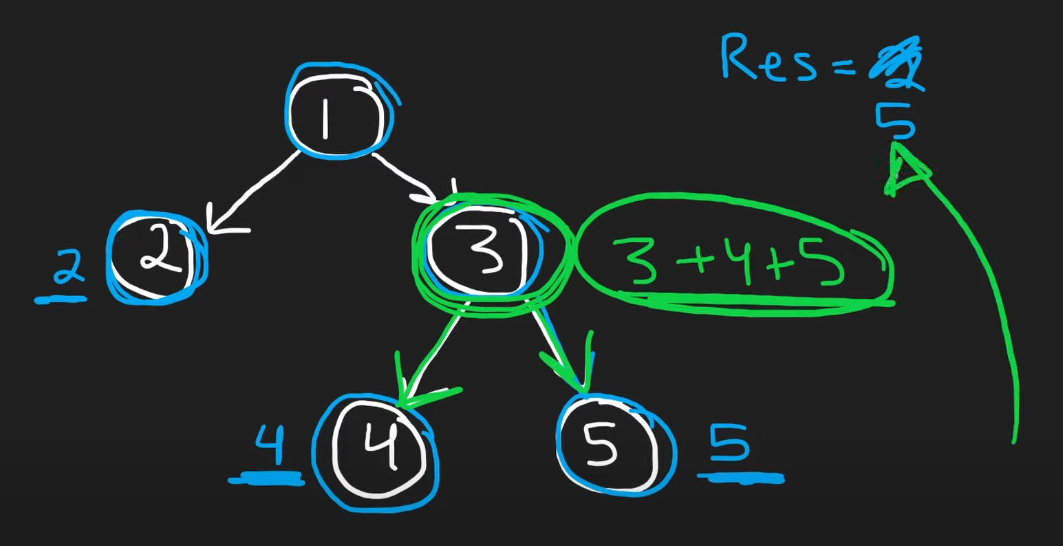 Res = 2
5
1
2
2
3
3+4+5
4
4
5
5